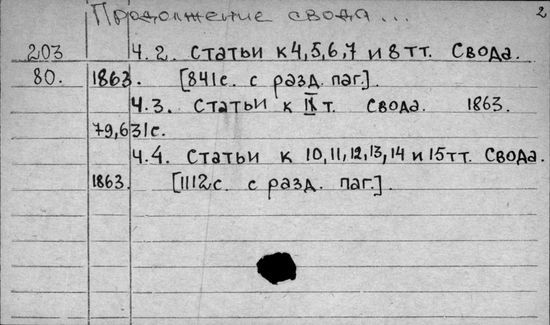 Продолжение свода... 2
203 Ч.2. Статьи к 4,5,6,7 и 8 тт. Свода.
80. 1863. [841с. с разд. паг.].
Ч.3. Статьи к IX т. Свода. 1863.
79,631с.
Ч.4. Статьи к 10,11,12,13,14 и 15 тт. Свода.
1863. [1112с. с разд. паг.].